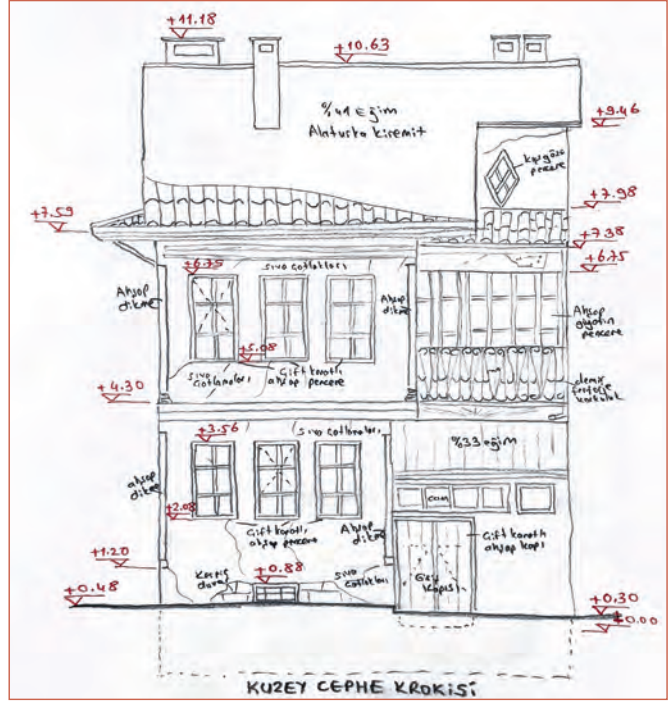 +11.18
+10.63
%41 Eğim
Alaturka kiremit
+9.46
kuş gözü
pencere
+7.98
+7.59
+7.38
+6.75
+6.75
sıva çatlakları
Ahşap
dikme
Ahşap
dikme
Ahşap
giyotin
pencere
+5.08
sıva
çatlamaları
Çift kanatlı
ahşap pencere
demir
ferforje
korkuluk
+4.30
+3.56
sıva çatlamaları
%33 eğim
ahşap
dikme
cam
+2.08
Çift kanatlı
ahşap pencere
Ahşap
dikme
Çift kanatlı
ahşap kapı
+1.20
Kerpiç
duvar
+0.88
sıva
çatlakları
Giriş
Kapısı
+0.48
+0.30
±0.00
KUZEY CEPHE KROKİSİ